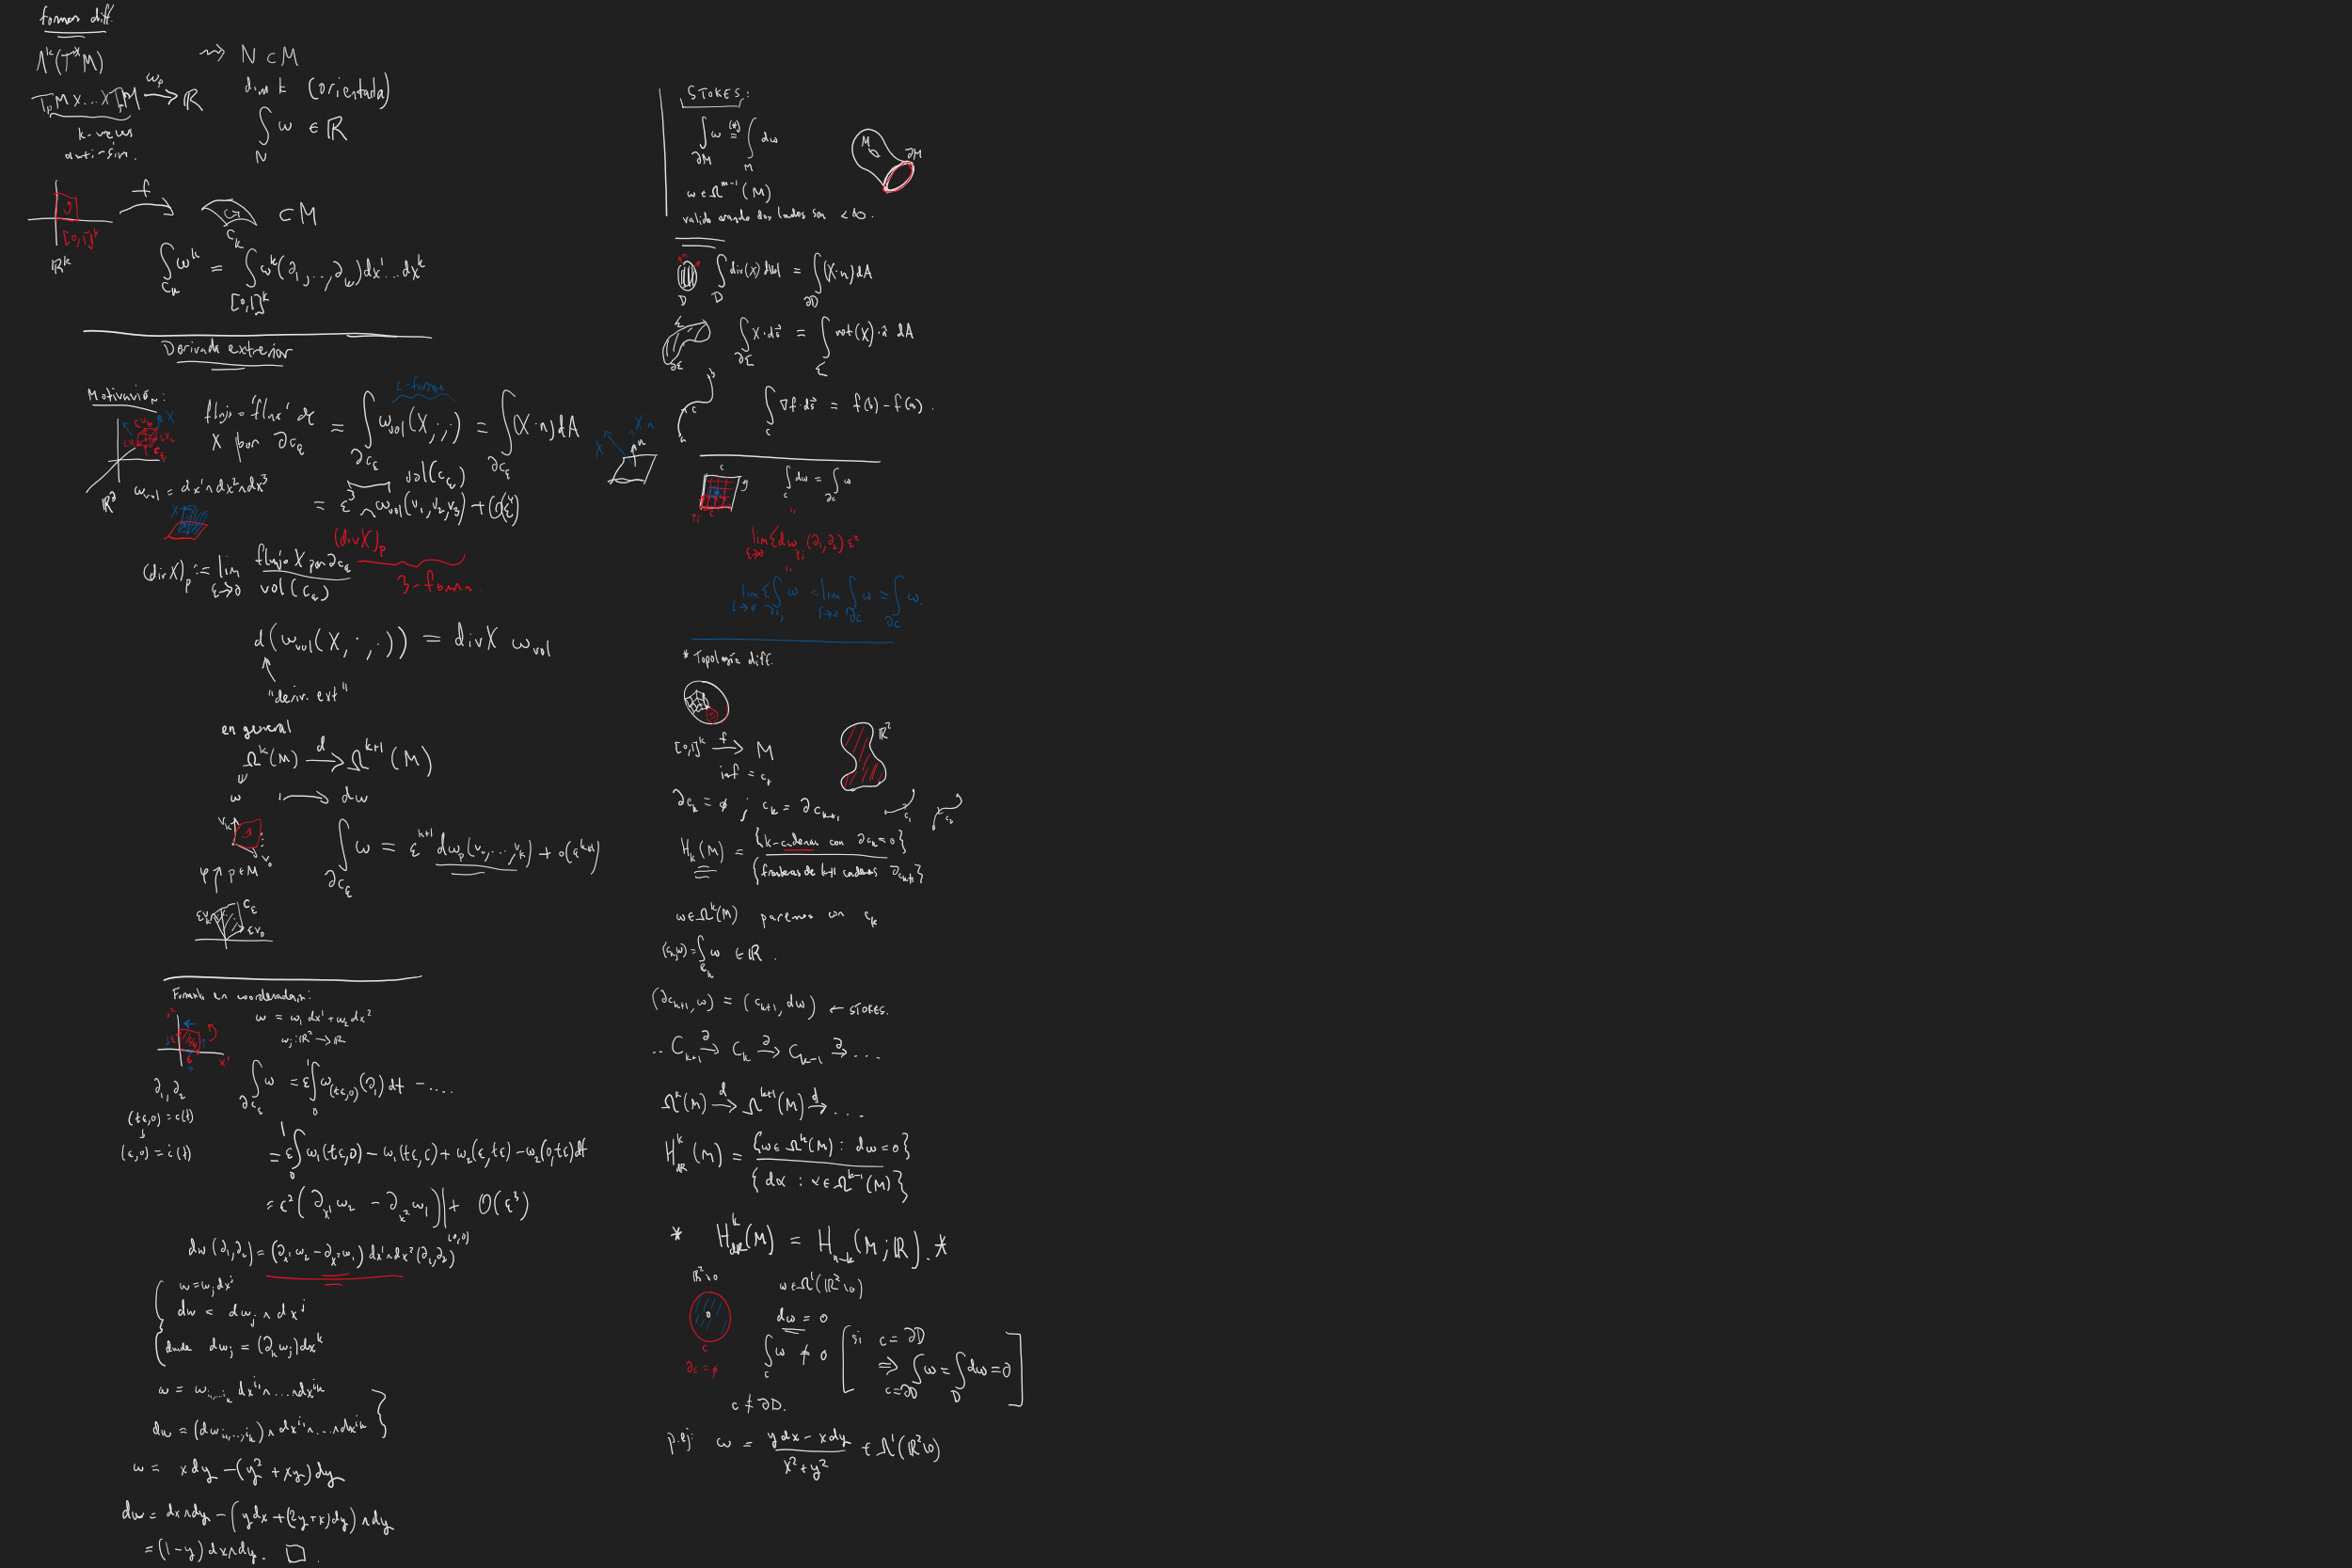 formas diff.
Λ^k(T^*M)
T_pM x...x T_pM →^{ω_p} ℝ
k-veces
anti-sim.
⇝ N ⊂ M
dim k (orientada)
∫_N ω ∈ ℝ
[0,1]^k
ℝ^k
f
c_k
⊂ M
∫_{c_k} ω^k = ∫_{[0,1]^k} ω^k(∂_1,...,∂_k)dx^1...dx^k
Derivada exterior
Motivación:
flujo 'flux' de
X por ∂c_ε
= ∫_{∂c_ε} ω_vol(X,·,·) = ∫_{∂c_ε} (X·n)dA
2-forma
vol(c_ε)
ℝ^3
ω_vol = dx^1∧dx^2∧dx^3
= ε^3 ω_vol(v_1,v_2,v_3) + O(ε^4)
X
X·n
n
(div X)_p
3-forma.
(div X)_p := lim_{ε→0} flujo X por ∂c_ε / vol(c_ε)
d(ω_vol(X,·,·)) = div X ω_vol
"deriv. ext"
en general
Ω^k(M) →^d Ω^{k+1}(M)
ω ↦ dω
v_k
v_0
φ↑ p∈M
∫_{∂c_ε} ω = ε^{k+1} dω_p(v_0,...,v_k) + o(ε^{k+1})
εv_k
c_ε
εv_0
en coordenadas:
ω = ω_1 dx^1 + ω_2 dx^2
ω_j: ℝ^2 → ℝ
x^2
x^1
∂_1, ∂_2
∫_{∂c_ε} ω = ε∫_0^1 ω_{(tε,0)}(∂_1) dt - ....
(tε,0) = c(t)
(ε,0) = ċ(t)
= ε∫_0^1 ω_1(tε,0) - ω_1(tε,ε) + ω_2(ε,tε) - ω_2(0,tε) dt
= ε^2(∂_{x^1}ω_2 - ∂_{x^2}ω_1)|_{(0,0)} + O(ε^3)
dω(∂_1,∂_2) = (∂_{x^1}ω_2 - ∂_{x^2}ω_1) dx^1∧dx^2(∂_1,∂_2)
ω = ω_j dx^j
dω = dω_j ∧ dx^j
donde dω_j = (∂_k ω_j)dx^k
ω = ω_{i_1...i_k} dx^{i_1}∧...∧dx^{i_k}
dω = (dω_{i_1,...,i_k})∧dx^{i_1}∧...∧dx^{i_k}
ω = xdy - (y^2 + xy)dy
dω = dx∧dy - (ydx + (2y+x)dy)∧dy
= (1-y)dx∧dy. □.
STOKES:
∫_{∂M} ω =^{(*)} ∫_M dω
M
∂M
ω∈Ω^{m-1}(M)
valido cuando dos lados son < ∞.
D
∫_D div(X) dVol = ∫_{∂D} (X·n)dA
Σ
∂Σ
∫_{∂Σ} X·ds⃗ = ∫_Σ rot(X)·n̂ dA
a
c
b
∫_c ∇f·ds⃗ = f(b) - f(a).
c
∫_c dω = ∫_{∂c} ω
lim_{ε→0} Σ dω_{p_j}(∂_1,∂_2) ε^2
lim_{ε→0} Σ ∫_{∂c_j} ω = lim_{ε→0} ∫_{∂c} ω = ∫_{∂c} ω.
* Topologia diff.
[0,1]^k →^f M
im f = c_k
ℝ^2
∂c_k = ∅ ; c_k = ∂c_{k+1}
H_k(M) = {k-cadenas con ∂c_k=0}
{fronteras de k+1 cadenas ∂c_{k+1}}
ω∈Ω^k(M) paremos con c_k
(c_k,ω) = ∫_{c_k} ω ∈ ℝ.
(∂c_{k+1}, ω) = (c_{k+1}, dω) ← STOKES.
.. C_{k+1} →^∂ C_k →^∂ C_{k-1} →^∂ ...
Ω^k(M) →^d Ω^{k+1}(M) →^d ...
H^k_{dR}(M) = {ω∈Ω^k(M) : dω=0}
{dα : α∈Ω^{k-1}(M)}
* H^k_{dR}(M) = H_{n-k}(M;ℝ). *
ℝ^2\0
ω∈Ω^1(ℝ^2\0)
dω = 0
c
∂c = ∅
∫_c ω ≠ 0
[si c = ∂D
⇒ ∫_{c=∂D} ω = ∫_D dω = 0]
c ≠ ∂D.
p.ej: ω = (ydx - xdy)/(x^2+y^2) ∈ Ω^1(ℝ^2\0)